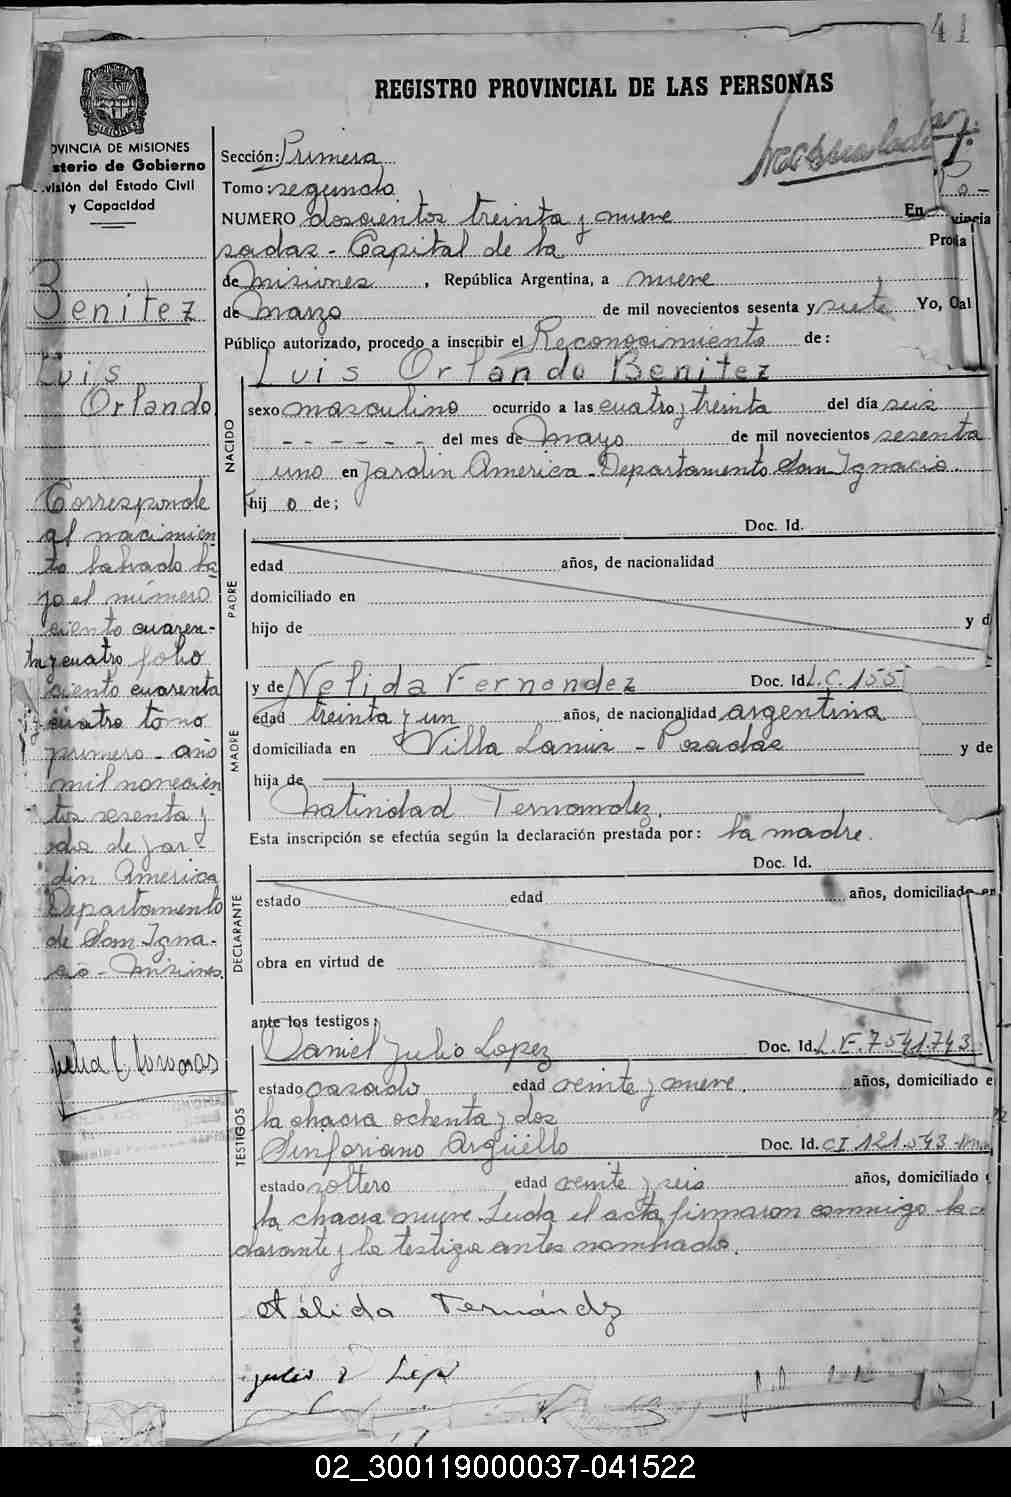 41
REGISTRO PROVINCIAL DE LAS PERSONAS
PROVINCIA DE
MISIONES
OVINCIA DE MISIONES
sterio de Gobierno
visión del Estado Civil
y Capacidad
Sección: Primera
Tomo: segundo
NUMERO doscientos treinta y nueve En
sadas - Capital de la Pro
vincia
de Misiones, República Argentina, a nueve
de Marzo de mil novecientos sesenta y siete Yo, Oal
Público autorizado, procedo a inscribir el Reconocimiento de:
Luis Orlando Benitez
NACIDO
sexo masculino ocurrido a las cuatro y treinta del día seis
- - - - - - del mes de Mayo de mil novecientos sesenta
uno en Jardin America - Departamento San Ignacio.
hij o de;
PADRE
Doc. Id.
edad años, de nacionalidad
domiciliado en
hijo de y d
MADRE
y de Nelida Fernandez Doc. Id. L.C. 155
edad treinta y un años, de nacionalidad argentina
domiciliada en Villa Lanus - Posadas y de
hija de
Natividad Fernandez.
Esta inscripción se efectúa según la declaración prestada por: la madre.
DECLARANTE
Doc. Id.
estado edad años, domiciliado en
obra en virtud de
ante los testigos:
TESTIGOS
Daniel Julio Lopez Doc. Id. L.E. 7541.743
estado casado edad veinte y nueve. años, domiciliado e
la chacra ochenta y dos
Sinforiano Argüello Doc. Id. CI 121.543
estado soltero edad veinte y seis años, domiciliado
la chacra nueve. Leida el acta, firmaron conmigo la
darante y los testigos antes nombrado.
Nélida Fernández
Julio
Benitez
Luis
Orlando
Corresponde
al nacimien
to labrado ba
jo el número
ciento cuaren-
ta y cuatro folio
ciento cuarenta
y cuatro tomo
primero - año
mil novecien
tos sesenta y
de Jar-
din America
Departamento
de San Igna-
cio - Misiones.
02_300119000037-041522